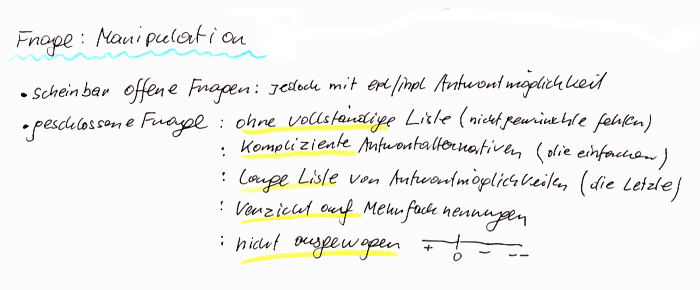 Frage: Manipulation
• scheinbar offene Fragen: jedoch mit expl/impl Antwortmöglichkeit
• geschlossene Frage: ohne vollständige Liste (nicht gewünschte fehlen)
: Komplizierte Antwortalternativen (die einfachen)
: Lange Liste von Antwortmöglichkeiten (die Letzte)
: Verzicht auf Mehrfachnennungen
: nicht ausgewogen + 0 - --